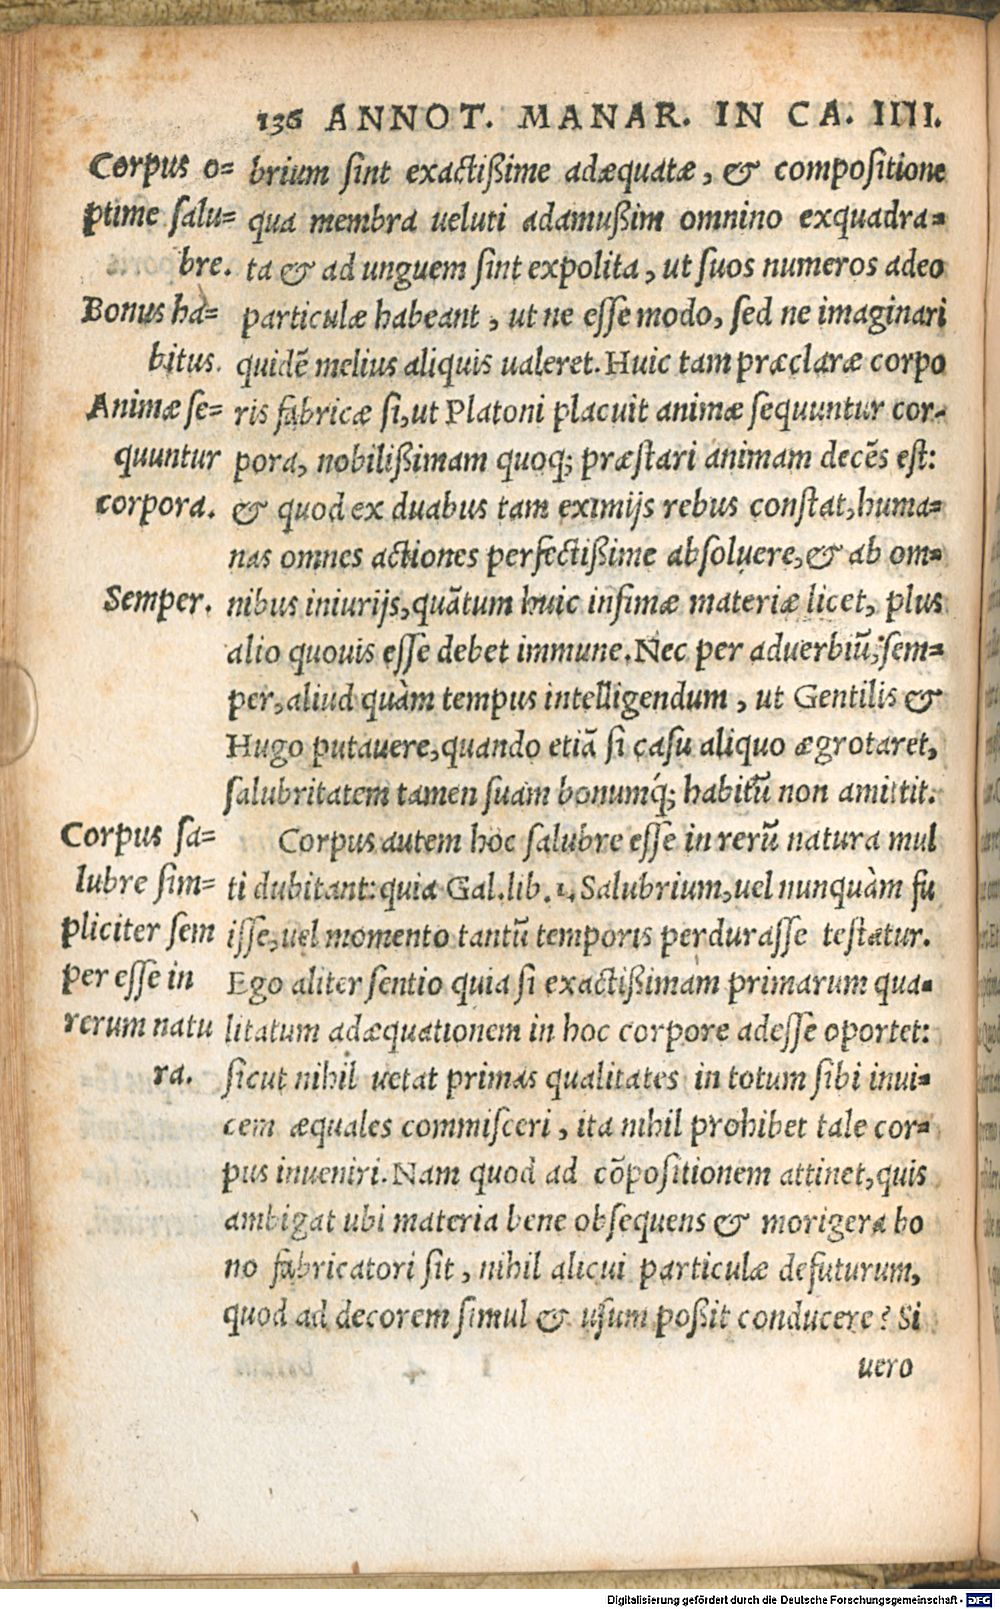 136 ANNOT. MANAR. IN CA. IIII.
Corpus o=
ptime salu=
bre.
Bonus ha=
bitus.
Animæ se=
quuntur
corpora.
Semper.
Corpus sa=
lubre sim=
pliciter sem
per esse in
rerum natu
ra.
brium sint exactißime adæquatæ, & compositione
qua membra ueluti adamußim omnino exquadra=
ta & ad unguem sint expolita, ut suos numeros adeo
particulæ habeant, ut ne esse modo, sed ne imaginari
quidē melius aliquis ualeret. Huic tam præclaræ corpo
ris fabricæ si, ut Platoni placuit animæ sequuntur cor=
pora, nobilißimam quoq; præstari animam decēs est:
& quod ex duabus tam eximijs rebus constat, huma=
nas omnes actiones perfectißime absoluere, & ab om=
nibus iniurijs, quātum huic infimæ materiæ licet, plus
alio quouis esse debet immune. Nec per aduerbiū, sem=
per, aliud quàm tempus intelligendum, ut Gentilis &
Hugo putauere, quando etiā si casu aliquo ægrotaret,
salubritatem tamen suam bonumq́; habitū non amittit.
Corpus autem hoc salubre esse in rerū natura mul
ti dubitant: quia Gal. lib. 1. Salubrium, uel nunquàm fu
isse, uel momento tantū temporis perdurasse testatur.
Ego aliter sentio quia si exactißimam primarum qua=
litatum adæquationem in hoc corpore adesse oportet:
sicut nihil uetat primas qualitates in totum sibi inui=
cem æquales commisceri, ita nihil prohibet tale cor=
pus inueniri. Nam quod ad cōpositionem attinet, quis
ambigat ubi materia bene obsequens & morigera bo
no fabricatori sit, nihil alicui particulæ defuturum,
quod ad decorem simul & usum poßit conducere? Si
uero
Digitalisierung gefördert durch die Deutsche Forschungsgemeinschaft - DFG